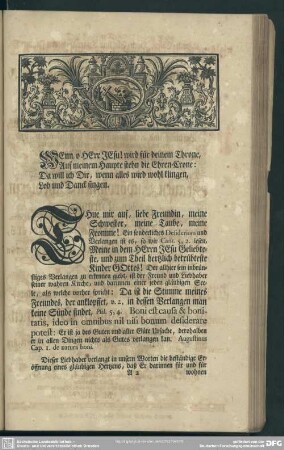 WEnn, o HErr JEsu! wird für deinem Throne,
Auf meinem Haupte stehn die Ehren-Crone:
Da will ich Dir, wenn alles wird wohl klingen,
Lob und Danck singen.
THue mir auf, liebe Freundin, meine
Schwester, meine Taube, meine
Fromme! Ein sonderliches Desiderium und
Verlangen ist es, so wir Cant. 5, 2. lesen,
Meine in dem HErrn JEsu Geliebte-
ste, und zum Theil hertzlich betrübteste
Kinder GOttes! Der allhier sein inbrün-
stiges Verlangen zu erkennen giebt, ist der Freund und Liebhaber
seiner wahren Kirche, und darinnen einer jeden gläubigen See-
le, als welche vorher spricht: Da ist die Stimme meines
Freundes, der anklopffet, v. 2, in dessen Verlangen man
keine Sünde findet, 5, 4. Boni est causa & boni-
tatis, ideo in omnibus nil nisi bonum desiderare
potest: Er ist ja des Guten und aller Güte Ursache, derohalben
er in allen Dingen nichts als Gutes verlangen kan. Augustinus
Cap. 1. de natura boni.
Dieser Liebhaber verlangt in unsern Worten die beständige Er-
öffnung eines gläubigen Hertzens, daß Er darinnen für und für
A 2 wohnen